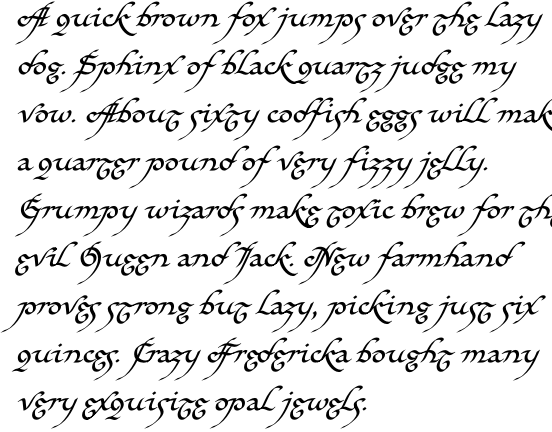 A quick brown fox jumps over the lazy
dog. Sphinx of black quartz judge my
vow. About sixty codfish eggs will mak
a quarter pound of very fizzy jelly.
Grumpy wizards make toxic brew for the
evil Queen and Jack. New farmhand
proves strong but lazy, picking just six
quinces. Crazy Fredericka bought many
very exquisite opal jewels.